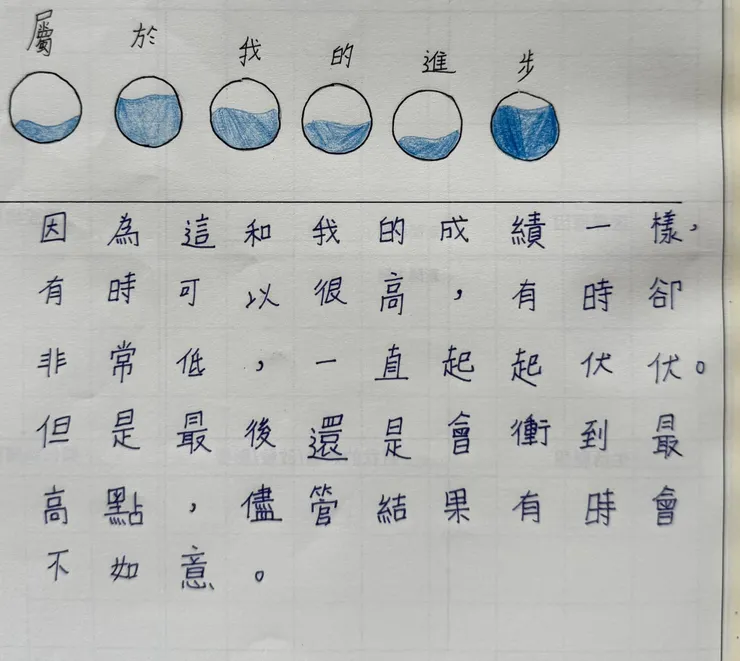 屬於我的進步
因為這和我的成績一樣，
有時可以很高，有時卻
非常低，一直起起伏伏。
但是最後還是會衝到最
高點，儘管結果有時會
不如意。